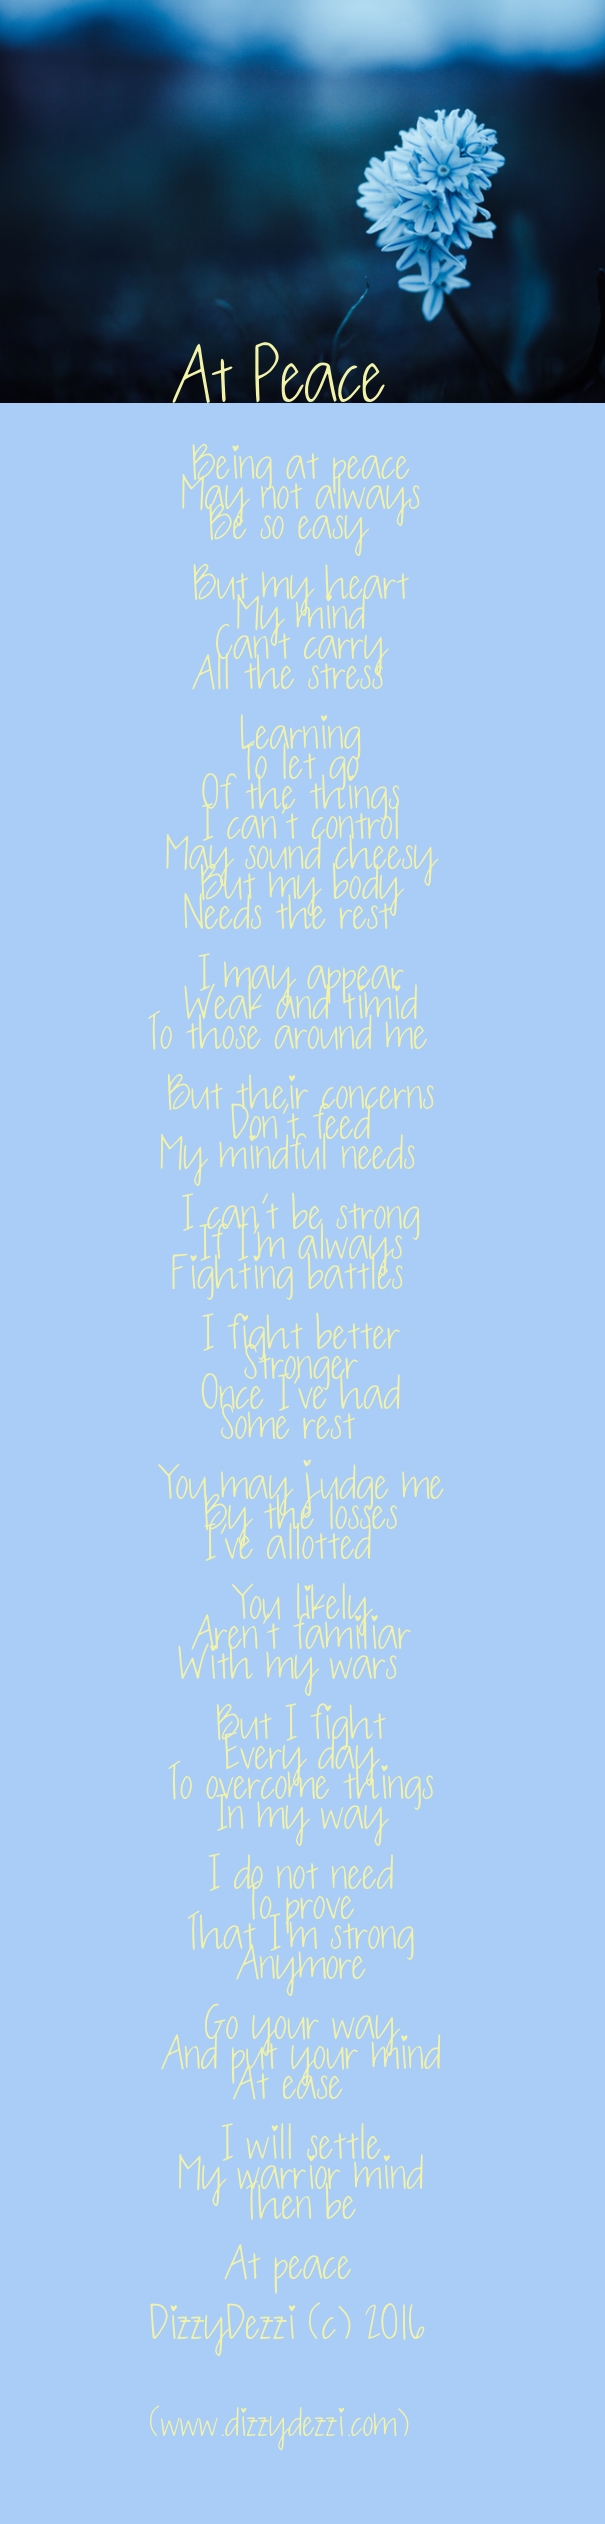 At Peace
Being at peace
May not always
Be so easy
But my heart
My mind
Can't carry
All the stress
Learning
To let go
Of the things
I can't control
May sound cheesy
But my body
Needs the rest
I may appear
Weak and timid
To those around me
But their concerns
Don't feed
My mindful needs
I can't be strong
If I'm always
Fighting battles
I fight better
Stronger
Once I've had
Some rest
You may judge me
By the losses
I've allotted
You likely
Aren't familiar
With my wars
But I fight
Every day
To overcome things
In my way
I do not need
To prove
That I'm strong
Anymore
Go your way
And put your mind
At ease
I will settle
My warrior mind
Then be
At peace
DizzyDezzi (c) 2016
(www.dizzydezzi.com)